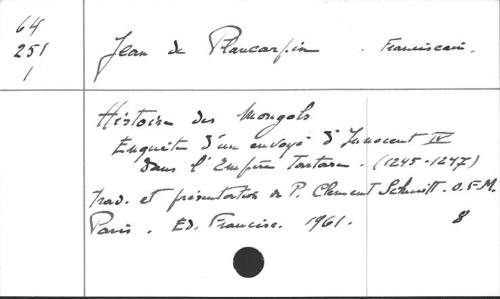 64
251
1
Jean de Plancarpin . Franciscain.
Histoire des Mongols
Enquête d'un envoyé d'Innocent IV
dans l'Empire Tartare . (1245-1247)
trad. et présentation de P. Clement Schmitt. O.F.M.
Paris . Ed. Francisc. 1961. 8